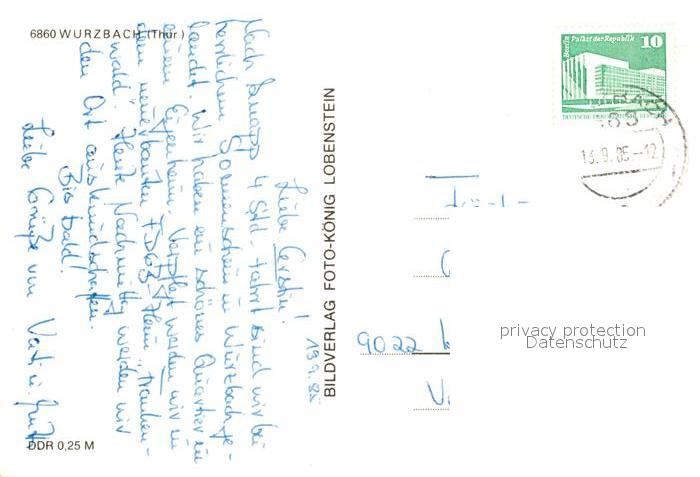 6860 WURZBACH (Thür.)
13.9.85
Liebe Kerstin!
Nach knapp 4 Std. Fahrt sind wir bei
herrlichem Sonnenschein in Wurzbach ge-
landet. Wir haben ein schönes Quartier in
einem Eigenheim. Verpflegt werden wir in
dem neugebauten FDGB-Heim „Franken-
wald“. Heute Nachmittag werden wir
den Ort auskundschaften.
Bis bald!
Liebe Grüße von Vati u.
DDR 0,25 M
BILDVERLAG FOTO-KÖNIG LOBENSTEIN
Berlin Palast der Republik
10
DEUTSCHE DEMOKRATISCHE REPUBLIK
13.9.85-12
9022
privacy protection
Datenschutz